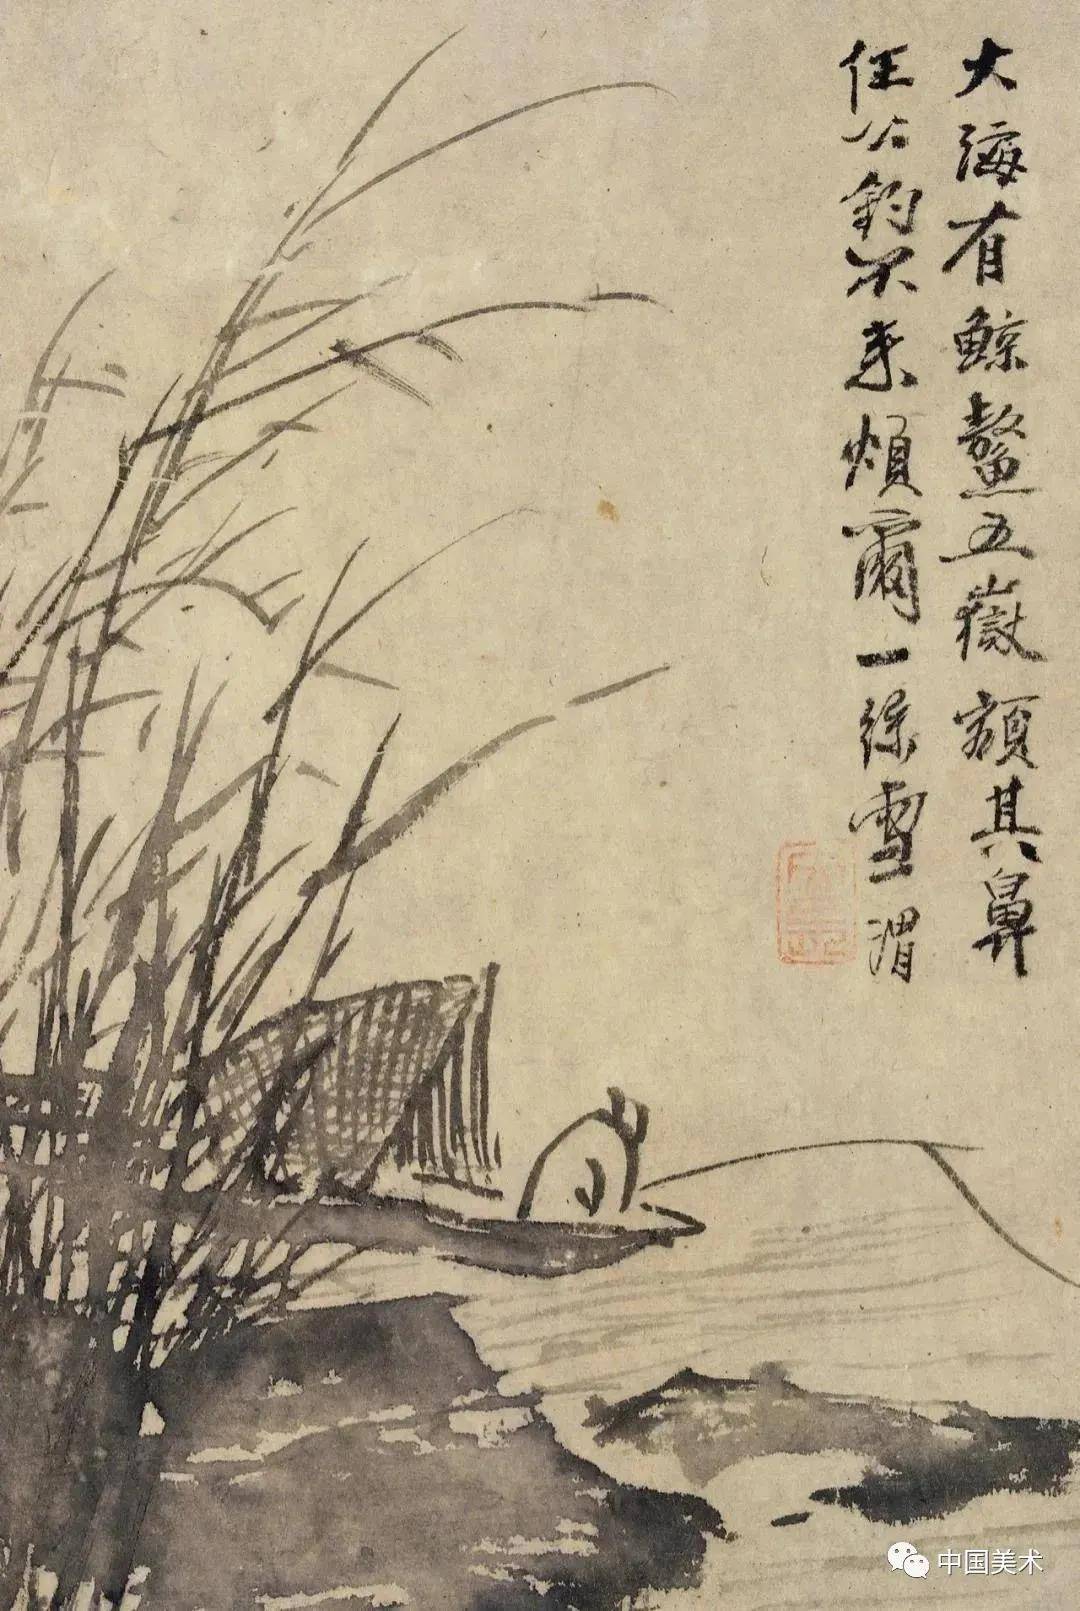 大海有鯨鰲五嶽額其鼻
任公釣不來煩爾一雪渭
中国美术